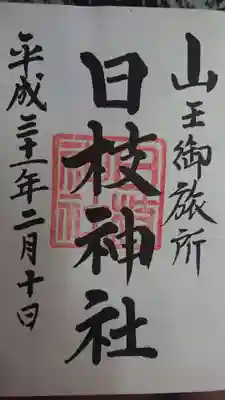 山王御旅所
日枝神社
平成三十一年二月十日
日枝神社